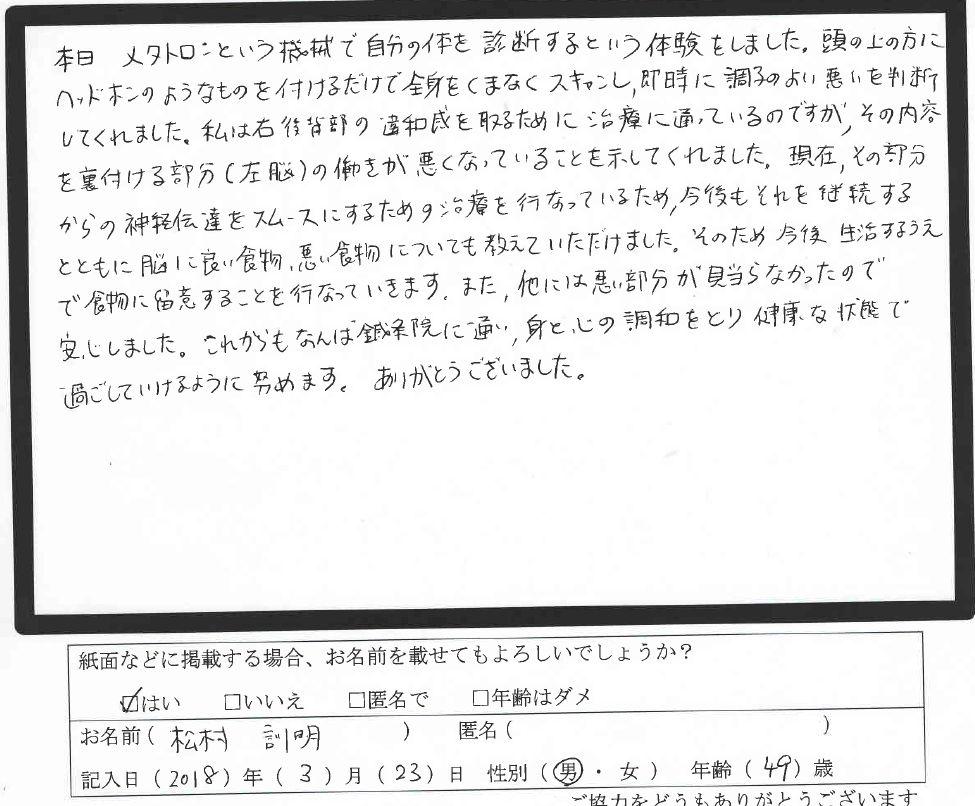 本日 メタトロンという機械で自分の体を診断するという体験をしました。頭の上の方に
ヘッドホンのようなものを付けるだけで全身をくまなくスキャンし,即時に調子のよい悪いを判断
してくれました。私は右後背部の違和感を取るために治療に通っているのですが,その内容
を裏付ける部分(左脳)の働きが悪くなっていることを示してくれました。現在,その部分
からの神経伝達をスムースにするための治療を行なっているため,今後もそれを継続する
とともに脳に良い食物、悪い食物についても教えていただけました。そのため今後生活するうえ
で食物に留意することを行なっていきます。また,他には悪い部分が見当らなかったので
安心しました。これからもなんば鍼灸院に通い,身と心の調和をとり健康な状態で
過ごしていけるように努めます。ありがとうございました。
紙面などに掲載する場合、お名前を載せてもよろしいでしょうか?
☑はい □いいえ □匿名で □年齢はダメ
お名前( 松村 訓明 ) 匿名( )
記入日(2018)年(3)月(23)日 性別(男・女) 年齢(49)歳
ご協力をどうもありがとうございます